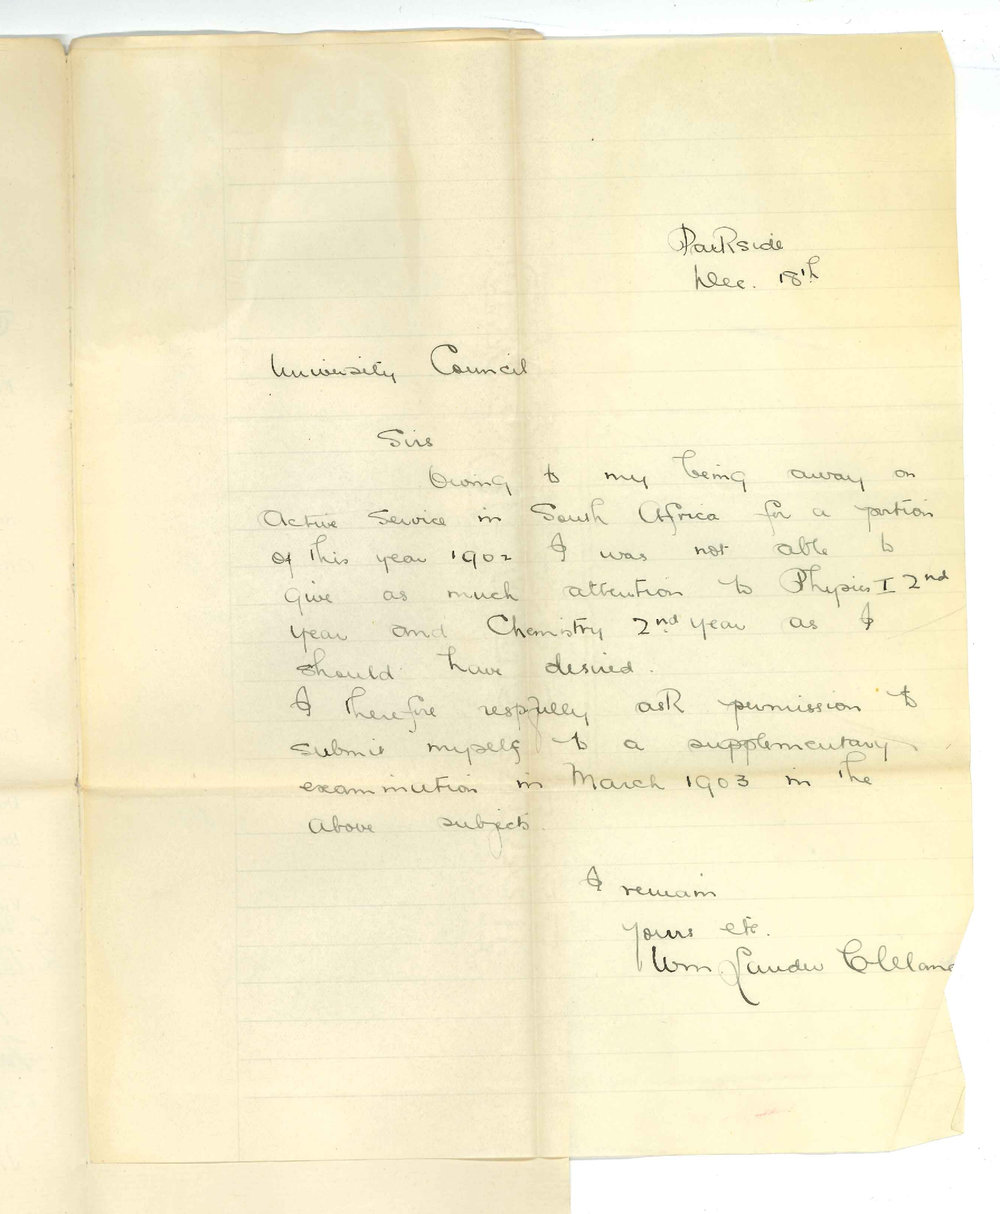 Parkside
Dec. 18th
University Council
Sirs
Owing to my being away on
Active Service in South Africa for a portion
of this year 1902 I was not able to
give as much attention to Physics I 2nd
year and Chemistry 2nd year as I
should have desired.
I therefore respfully ask permission to
submit myself to a supplementary
examination in March 1903 in the
above subjects.
I remain
yours etc.
Wm Lauder Cleland